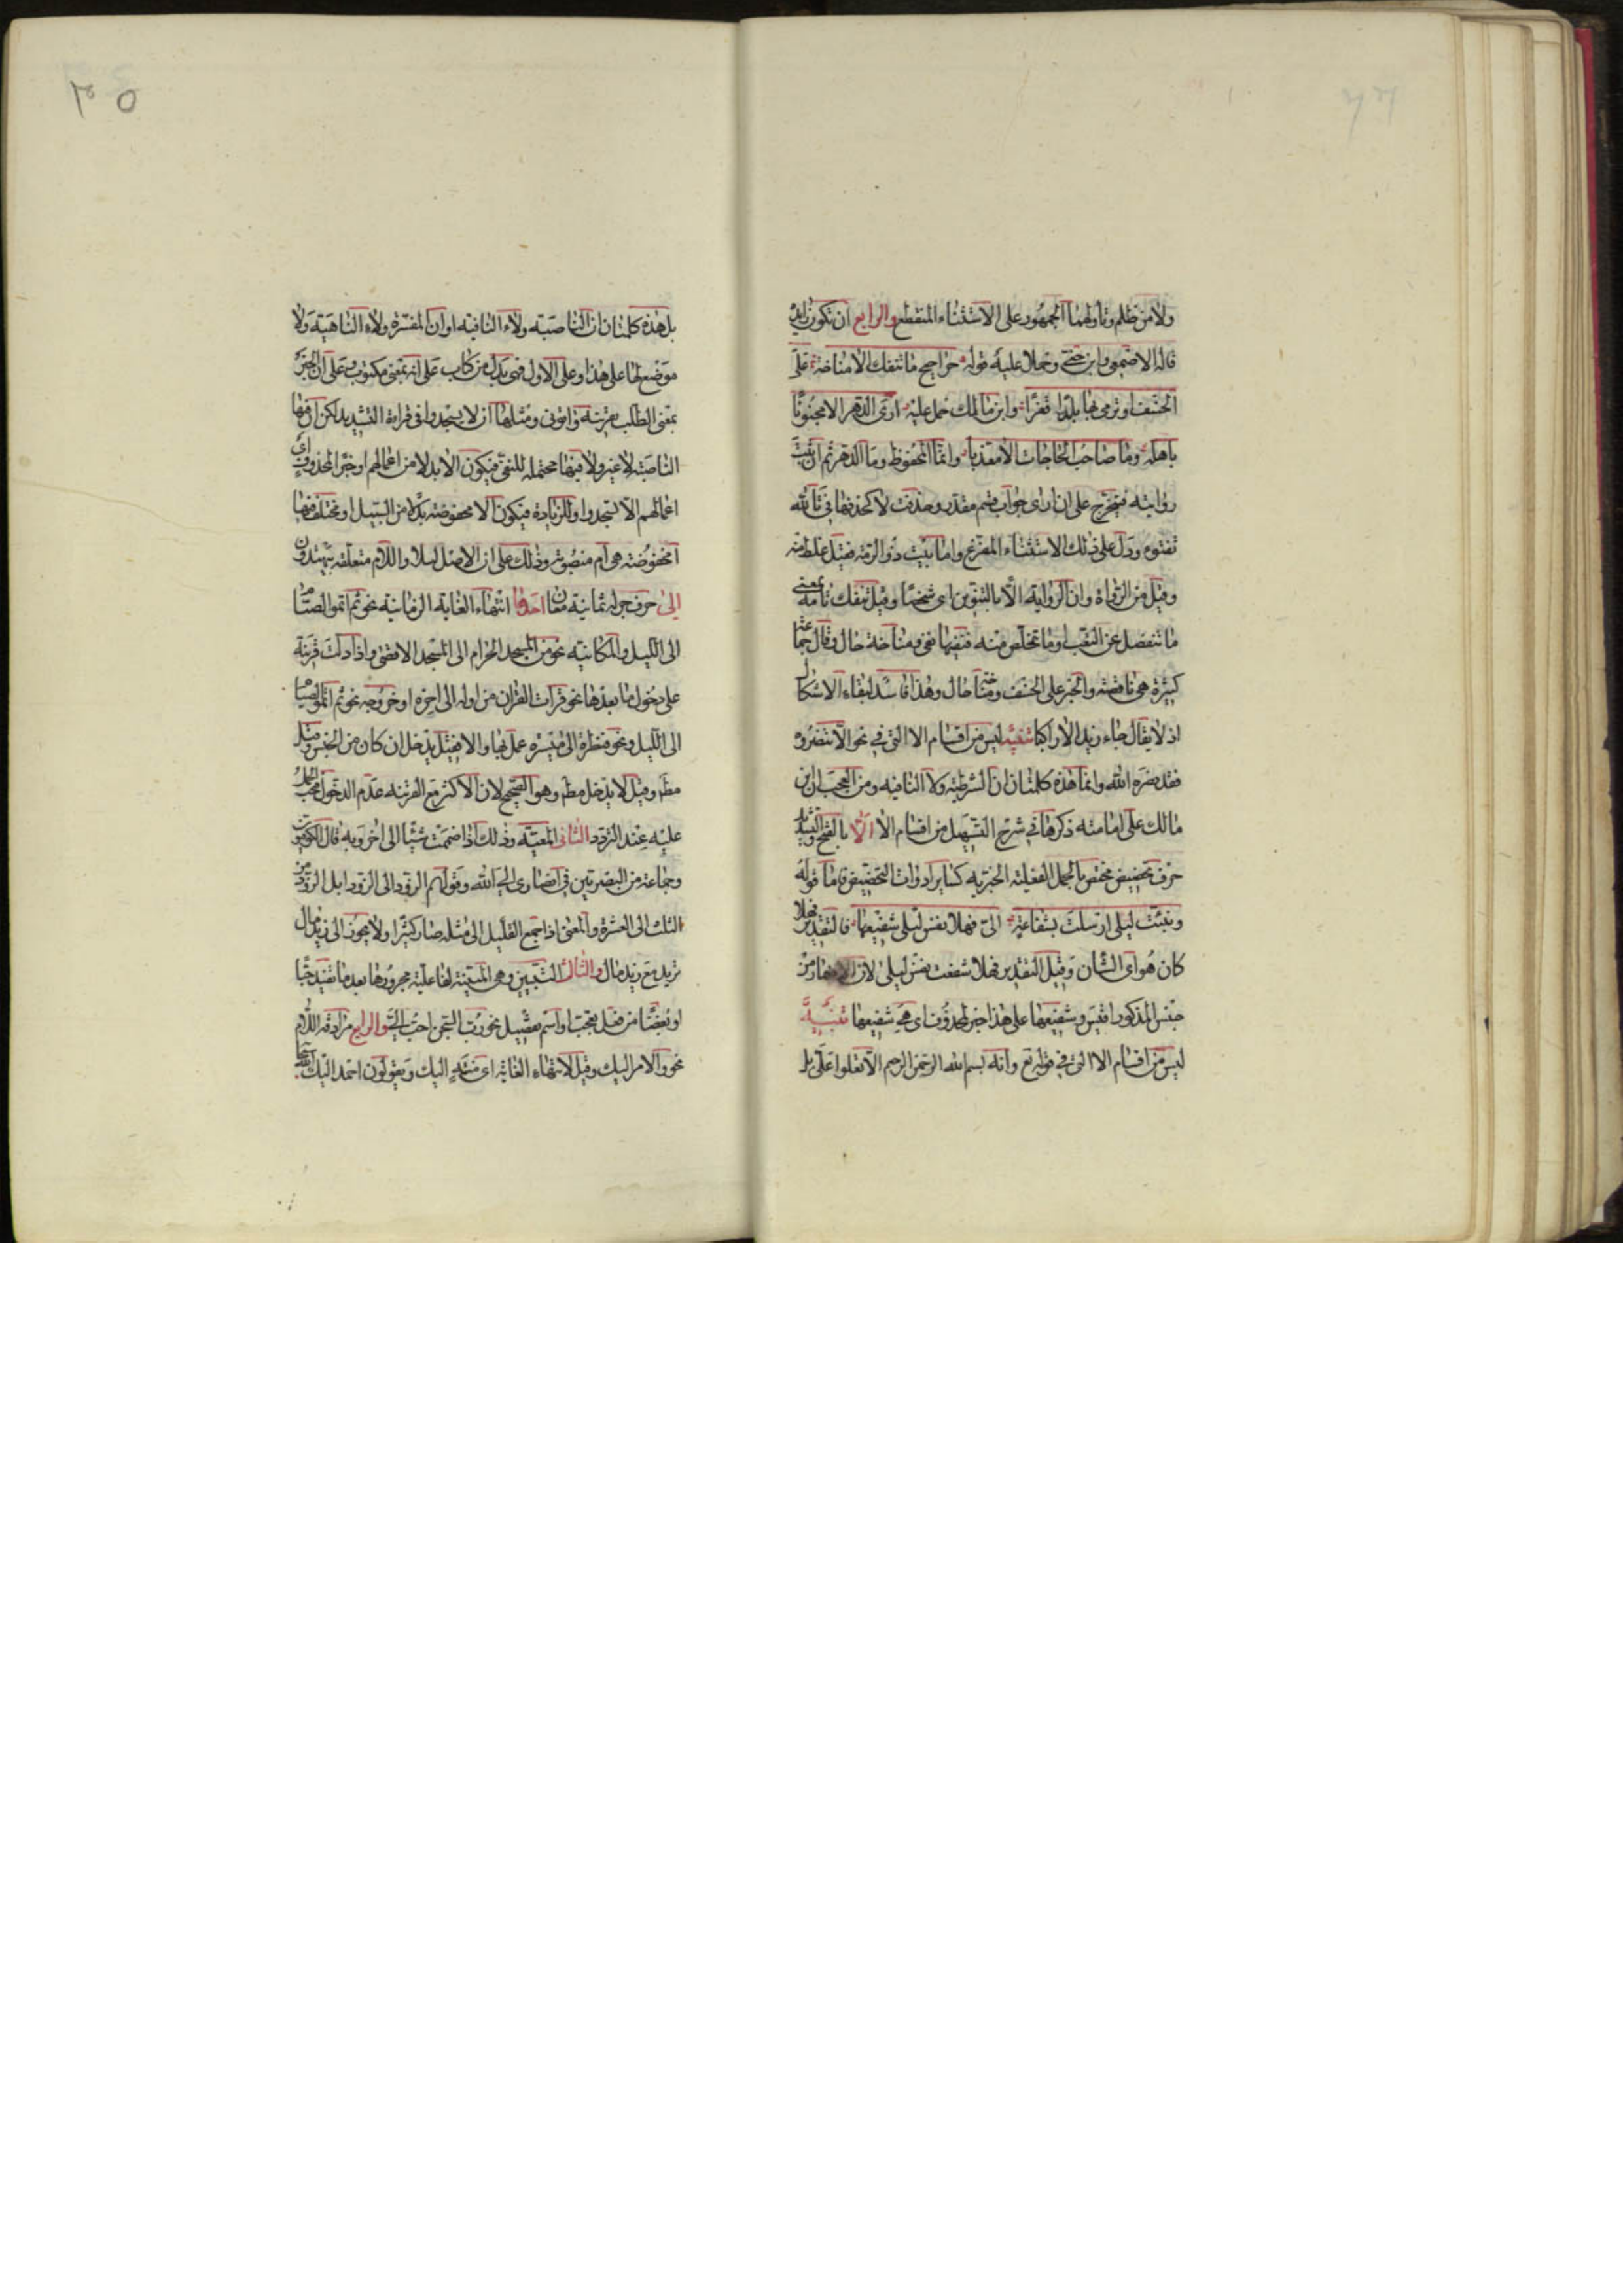 ولا من ظلم وتأولهما الجمهور على الاستثناء المنقطع والرابع ان تكون زايدة
قاله الاصمعى وابن جنى وحملا عليه قوله حراجيج ما تنفك الا مناخة على
الخسف او نرمى بها بلدا قفرا وابن مالك حمل عليه ارى الدهر الا منجنونا
باهله وما صاحب الحاجات الا معذبا وانما المحفوظ وما الدهر ثم ان ثبتت
روايته فيخرج على ان ارى جواب قسم مقدر وحذفت لا كحذفها فى تالله
تفتؤ ودل على ذلك الاستثناء المفرغ واما بيت ذو الرمة فقيل غلط منه
وقيل من الرواة وان الرواية الا بالتنوين اى شخصا وقيل تنفك تامة بمعنى
ما تنفصل عن التعب او ما تخلص منه فنفيها نفى ومناخة حال وقال جماعة
كثيرة هى ناقصة والخبر على الخسف ومناخة حال وهذا فاسد لبقاء الاشكال
اذ لا يقال جاء زيد الا راكبا تنبيه ليس من اقسام الا التى فى نحو الا تنصروه
فقد نصره الله وانما هذه كلمتان ان الشرطية ولا النافية ومن العجب ان ابن
مالك على امامته ذكرها فى شرح التسهيل من اقسام الا الا بالفتح والتشديد
حرف تحضيض مختص بالجمل الفعلية الخبرية كساير ادوات التحضيض فاما قوله
ونبئت ليلى ارسلت بشفاعة الى فهلا نفس ليلى شفيعها فالتقدير فهلا
كان هو اى الشان وقيل التقدير فهلا شفعت نفس ليلى لان الاضمار من
جنس المذكور اقيس وشفيعها على هذا خبر لمحذوف اى هى شفيعها تنبيه
ليس من اقسام الا التى فى قوله تع وانه بسم الله الرحمن الرحيم الا تعلوا على بل
٣٥
بل هذه كلمتان ان الناصبة ولاء النافية او ان المفسرة ولاء الناهية ولا
موضع لها على هذا وعلى الاول فهى بدل من كتاب على انه بمعنى مكتوب وعلى ان الخبر
بمعنى الطلب بقرينة وأتونى ومثلها ان لا يسجدوا فى قراءة التشديد لكن ان فيها
الناصبة لا غير ولا فيها محتملة للنفى فيكون الا بدلا من اعمالهم او خبر المحذوف اى
اعمالهم الا يسجدوا وللزيادة فيكون الا مخفوضة بدلا من السبيل او مختلف فيها
امخفوضة هى ام منصوبة وذلك على ان الاصل لئلا واللام متعلقة بيهتدون
الى حرف جر له ثمانية معان احدها انتهاء الغاية الزمانية نحو ثم اتموا الصيام
الى الليل والمكانية نحو من المسجد الحرام الى المسجد الاقصى واذا دلت قرينة
على دخول ما بعدها نحو قرأت القران من اوله الى اخره او خروجه نحو ثم اتموا الصيام
الى الليل ونحو فنظرة الى ميسرة عمل بها والا فقيل يدخل ان كان من الجنس وقيل
مط وقيل لا يدخل مط وهو الصحيح لان الاكثر مع القرينة عدم الدخول فيجب الحمل
عليه عند التردد الثانى المعية وذلك اذا ضممت شيئا الى اخر وبه قال الكوفيون
وجماعة من البصريين فى من انصارى الى الله وقولهم الذود الى الذود ابل الذود من
الثلث الى العشرة والمعنى اذا جمع القليل الى مثله صار كثيرا ولا يجوز الى زيد مال
تريد مع زيد مال والثالث التبيين وهى المبينة لفاعلية مجرورها بعد ما تفيد حبا
او بغضا من فعل تعجب او اسم تفضيل نحو رب السجن احب الى والرابع مرادفة اللام
نحو والامر اليك وقيل لانتهاء الغاية اى منته اليك ويقولون احمد اليك الله